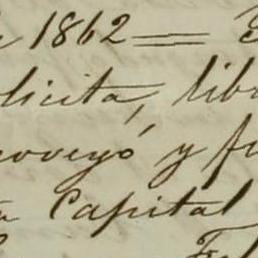 1862 =
licita, libr
roveyó y fu
Capital